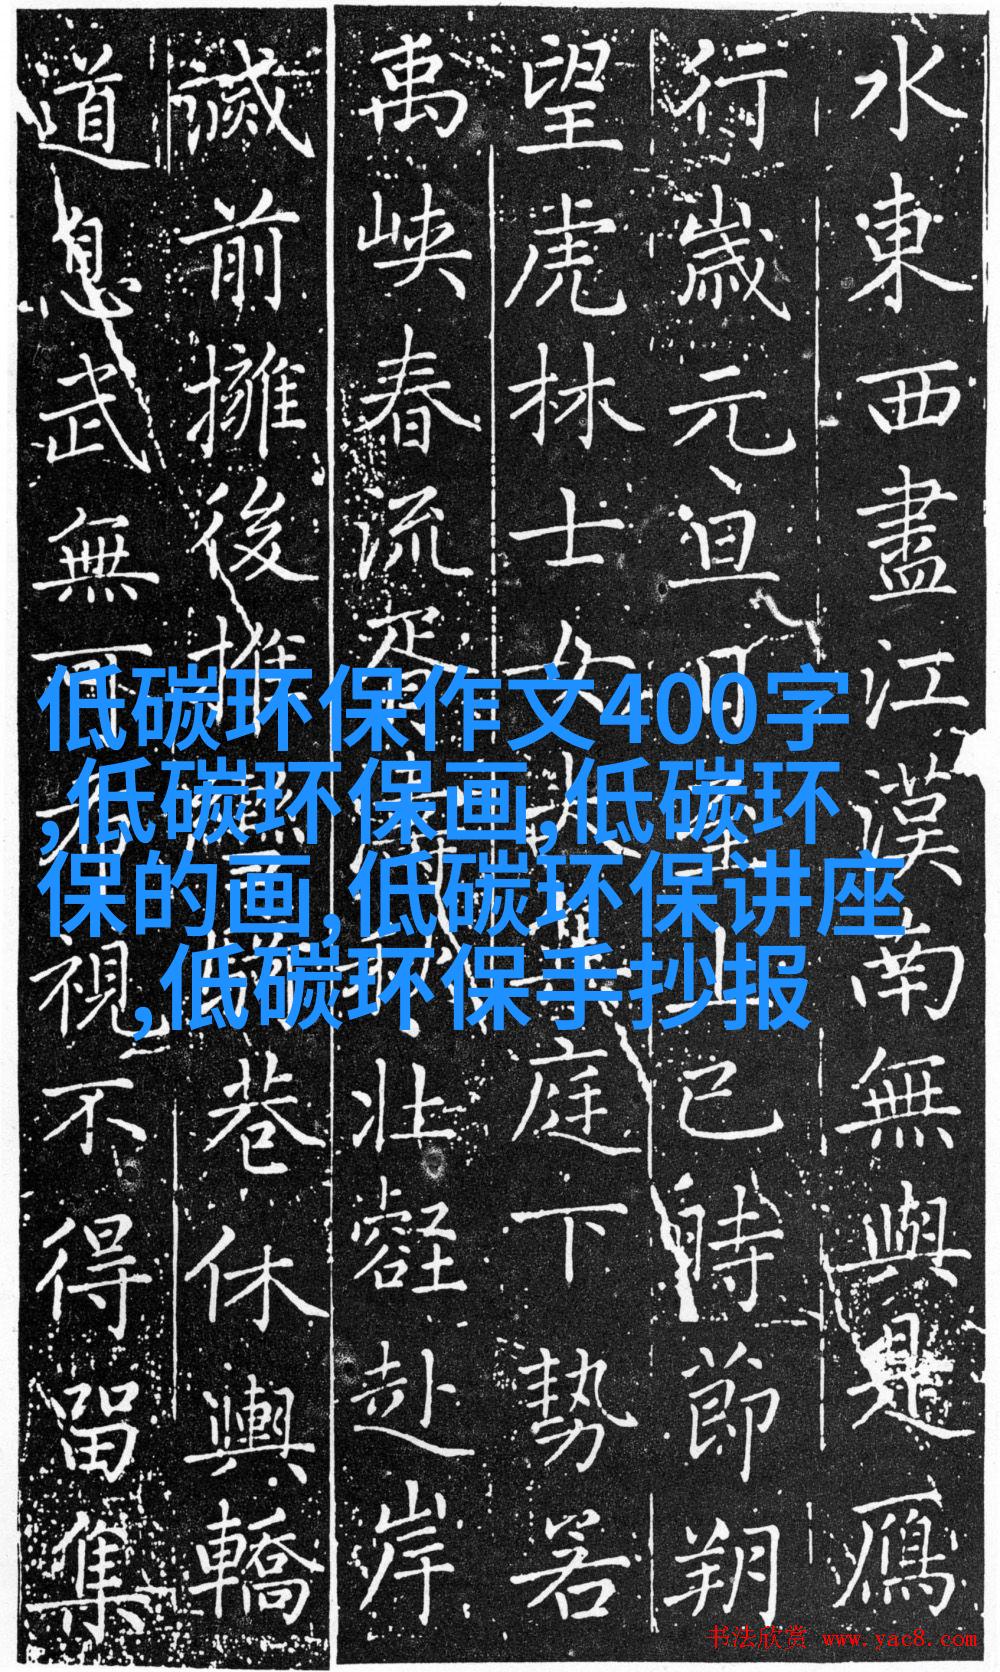 水東西盡江漢南無與是鴈
行歲元旦月上巳時節朔
望虎林士女大集庭下勢若
禹峽春流胥濤秋壯壑赴岸
前擁後推巷休輿轎
道息武無視不得留集
低碳环保作文400字
,低碳环保画,低碳环
保的画,低碳环保讲座
,低碳环保手抄报
书法欣赏 www.yac8.com